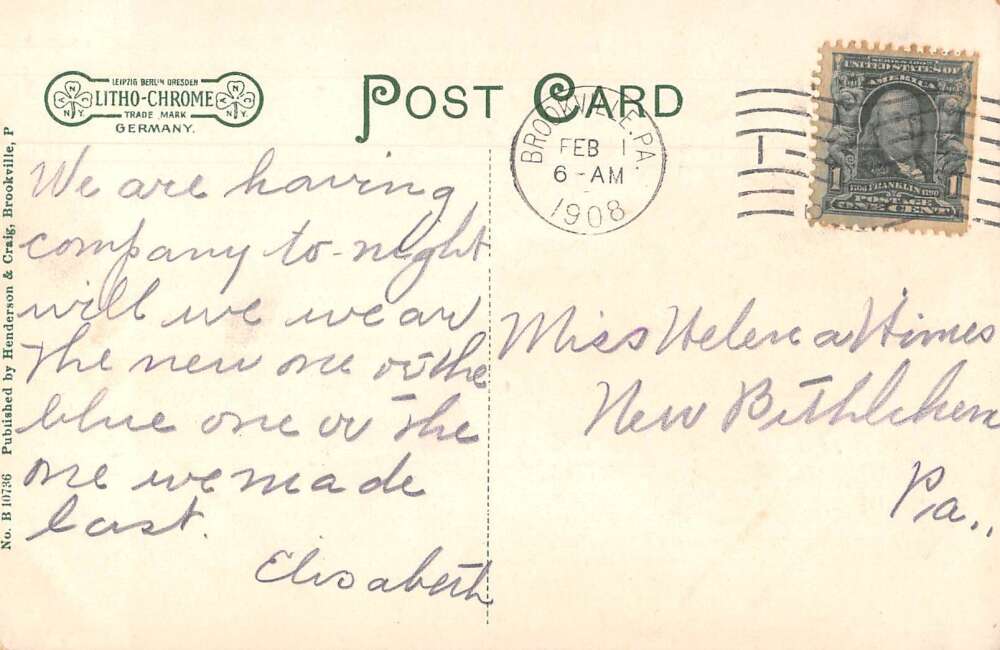 LEIPZIG BERLIN DRESDEN
LITHO-CHROME
TRADE MARK
GERMANY.
A N N.Y.
C N N.Y.
POST CARD
BROOKVILLE, PA.
FEB 1
6-AM
1908
SERIES 1902
UNITED STATES OF
AMERICA
1 1
1706 FRANKLIN 1790
POSTAGE
ONE CENT
No. B 10736 Published by Henderson & Craig, Brookville, P
We are having
company to-night
will we wear
the new one or the
blue one or the
one we made
last.
Elisabeth
Miss Helen a Himes
New Bethlehem
Pa..